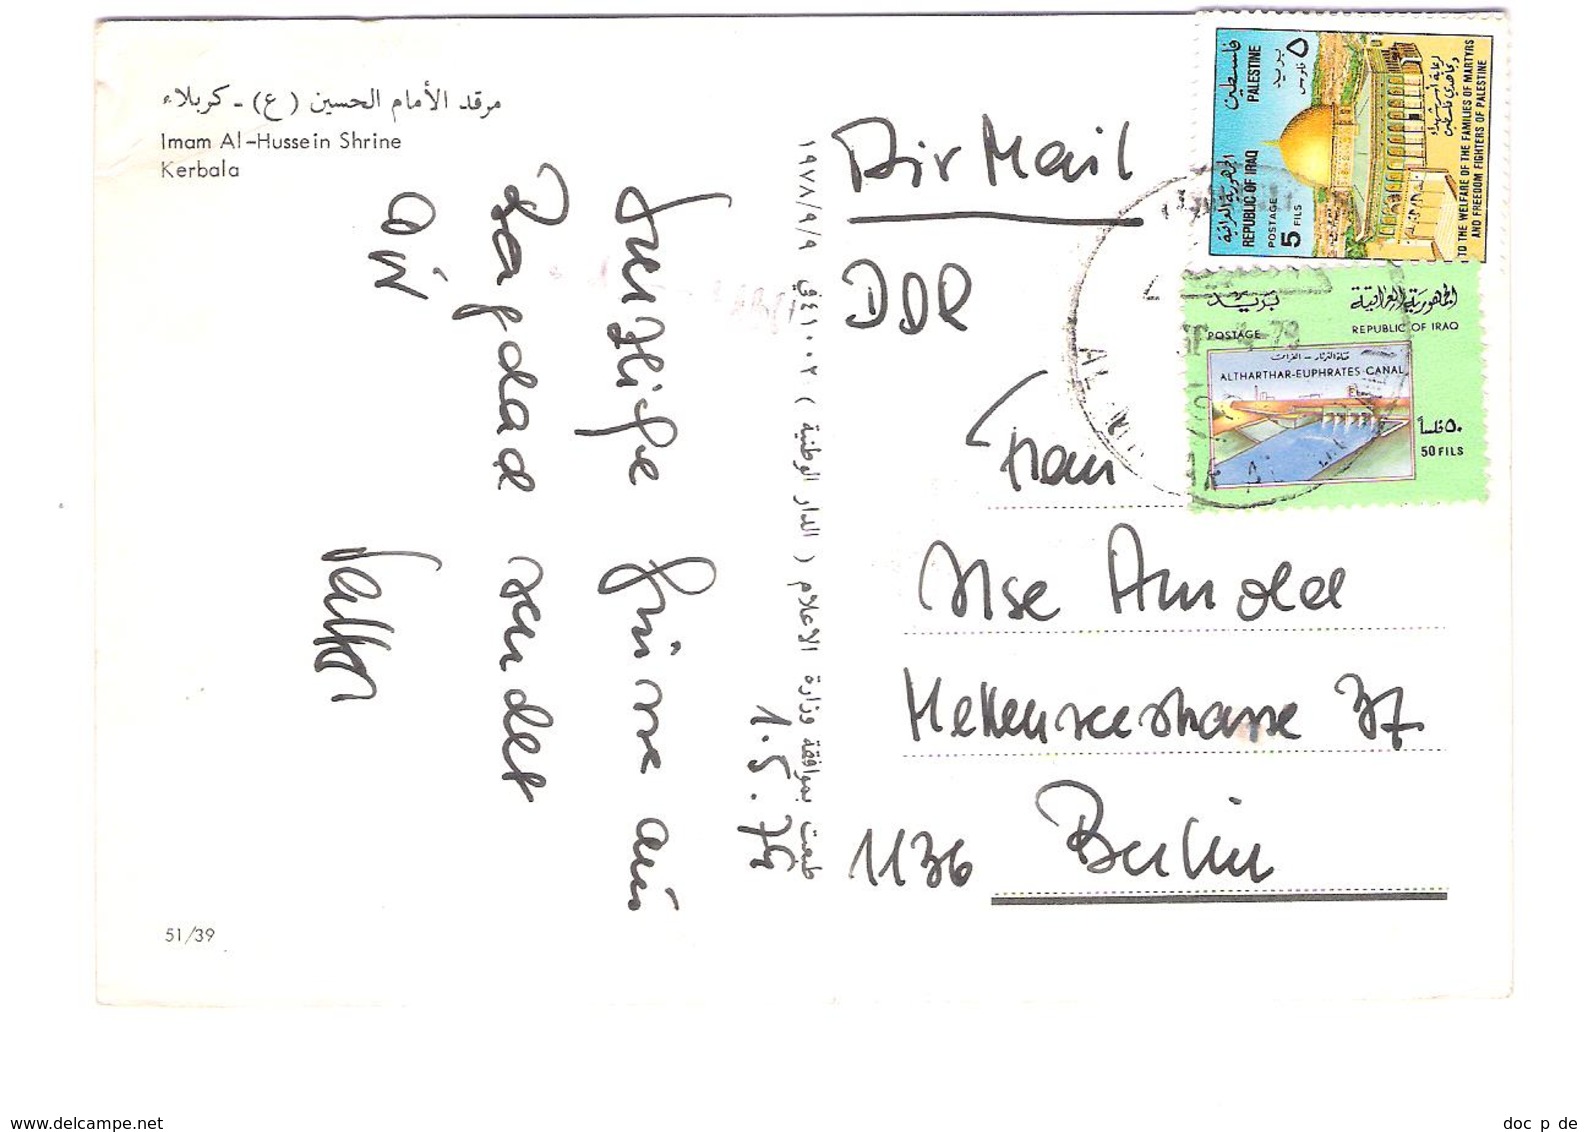 مرقد الأمام الحسين (ع) - كربلاء
Imam Al-Hussein Shrine
Kerbala
51/39
طبعت بموافقة وزارة الاعلام ( الدار الوطنية ) ٤١٠٠٢ في ١٩٧٨/٩/٩
1.5.79
Herzliche Grüsse aus
Bagdad sendet
Air Mail
DDR
Frau
Ilse Arnold
Mellenseestrasse 37
1136 Berlin
فلسطين
PALESTINE
بريد
٥ فلوس
الجمهورية العراقية
REPUBLIC OF IRAQ
POSTAGE
5 FILS
TO THE WELFARE OF THE FAMILIES OF MARTYRS
AND FREEDOM FIGHTERS OF PALESTINE
الجمهورية العراقية
بريد
REPUBLIC OF IRAQ
POSTAGE
قناة الثرثار - الفرات
ALTHARTHAR-EUPHRATES CANAL
٥٠ فلساً
50 FILS
www.delcampe.net
doc p de